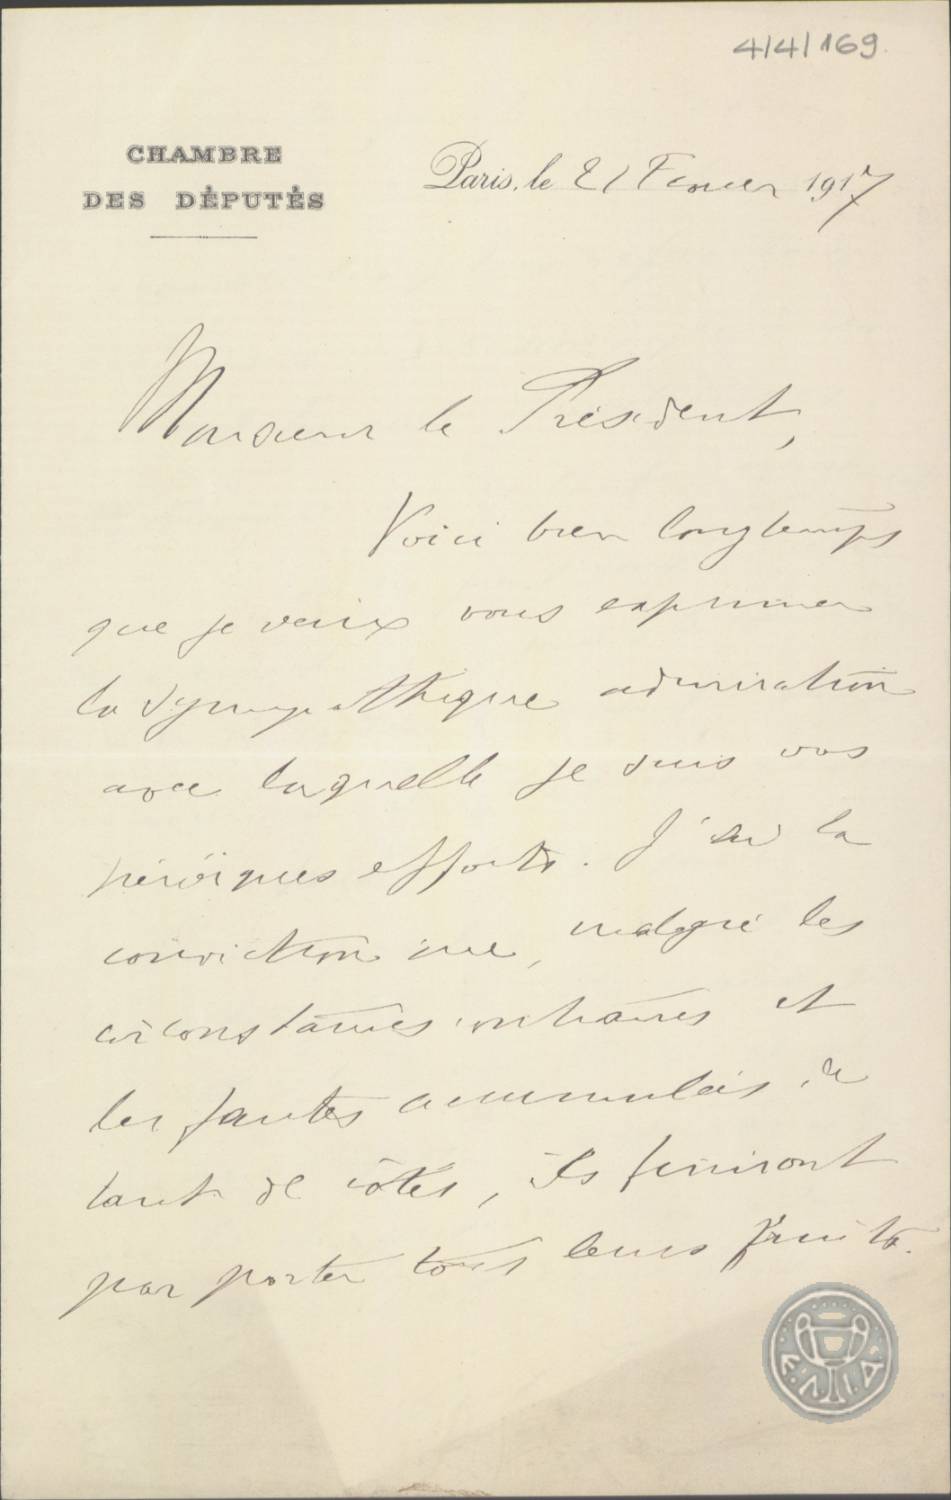 4/4/169
CHAMBRE
DES DÉPUTÉS
Paris, le 21 Fevrier 1917
Monsieur le Président,
Voici bien longtemps
que je veux vous exprimer
la sympathique admiration
avec laquelle je suis vos
héroïques efforts. J'ai la
conviction que, malgré les
circonstances contraires et
les fautes accumulées de
tant de côtés, ils finiront
par porter tous leurs fruits.
Ε.Λ.Ι.Α